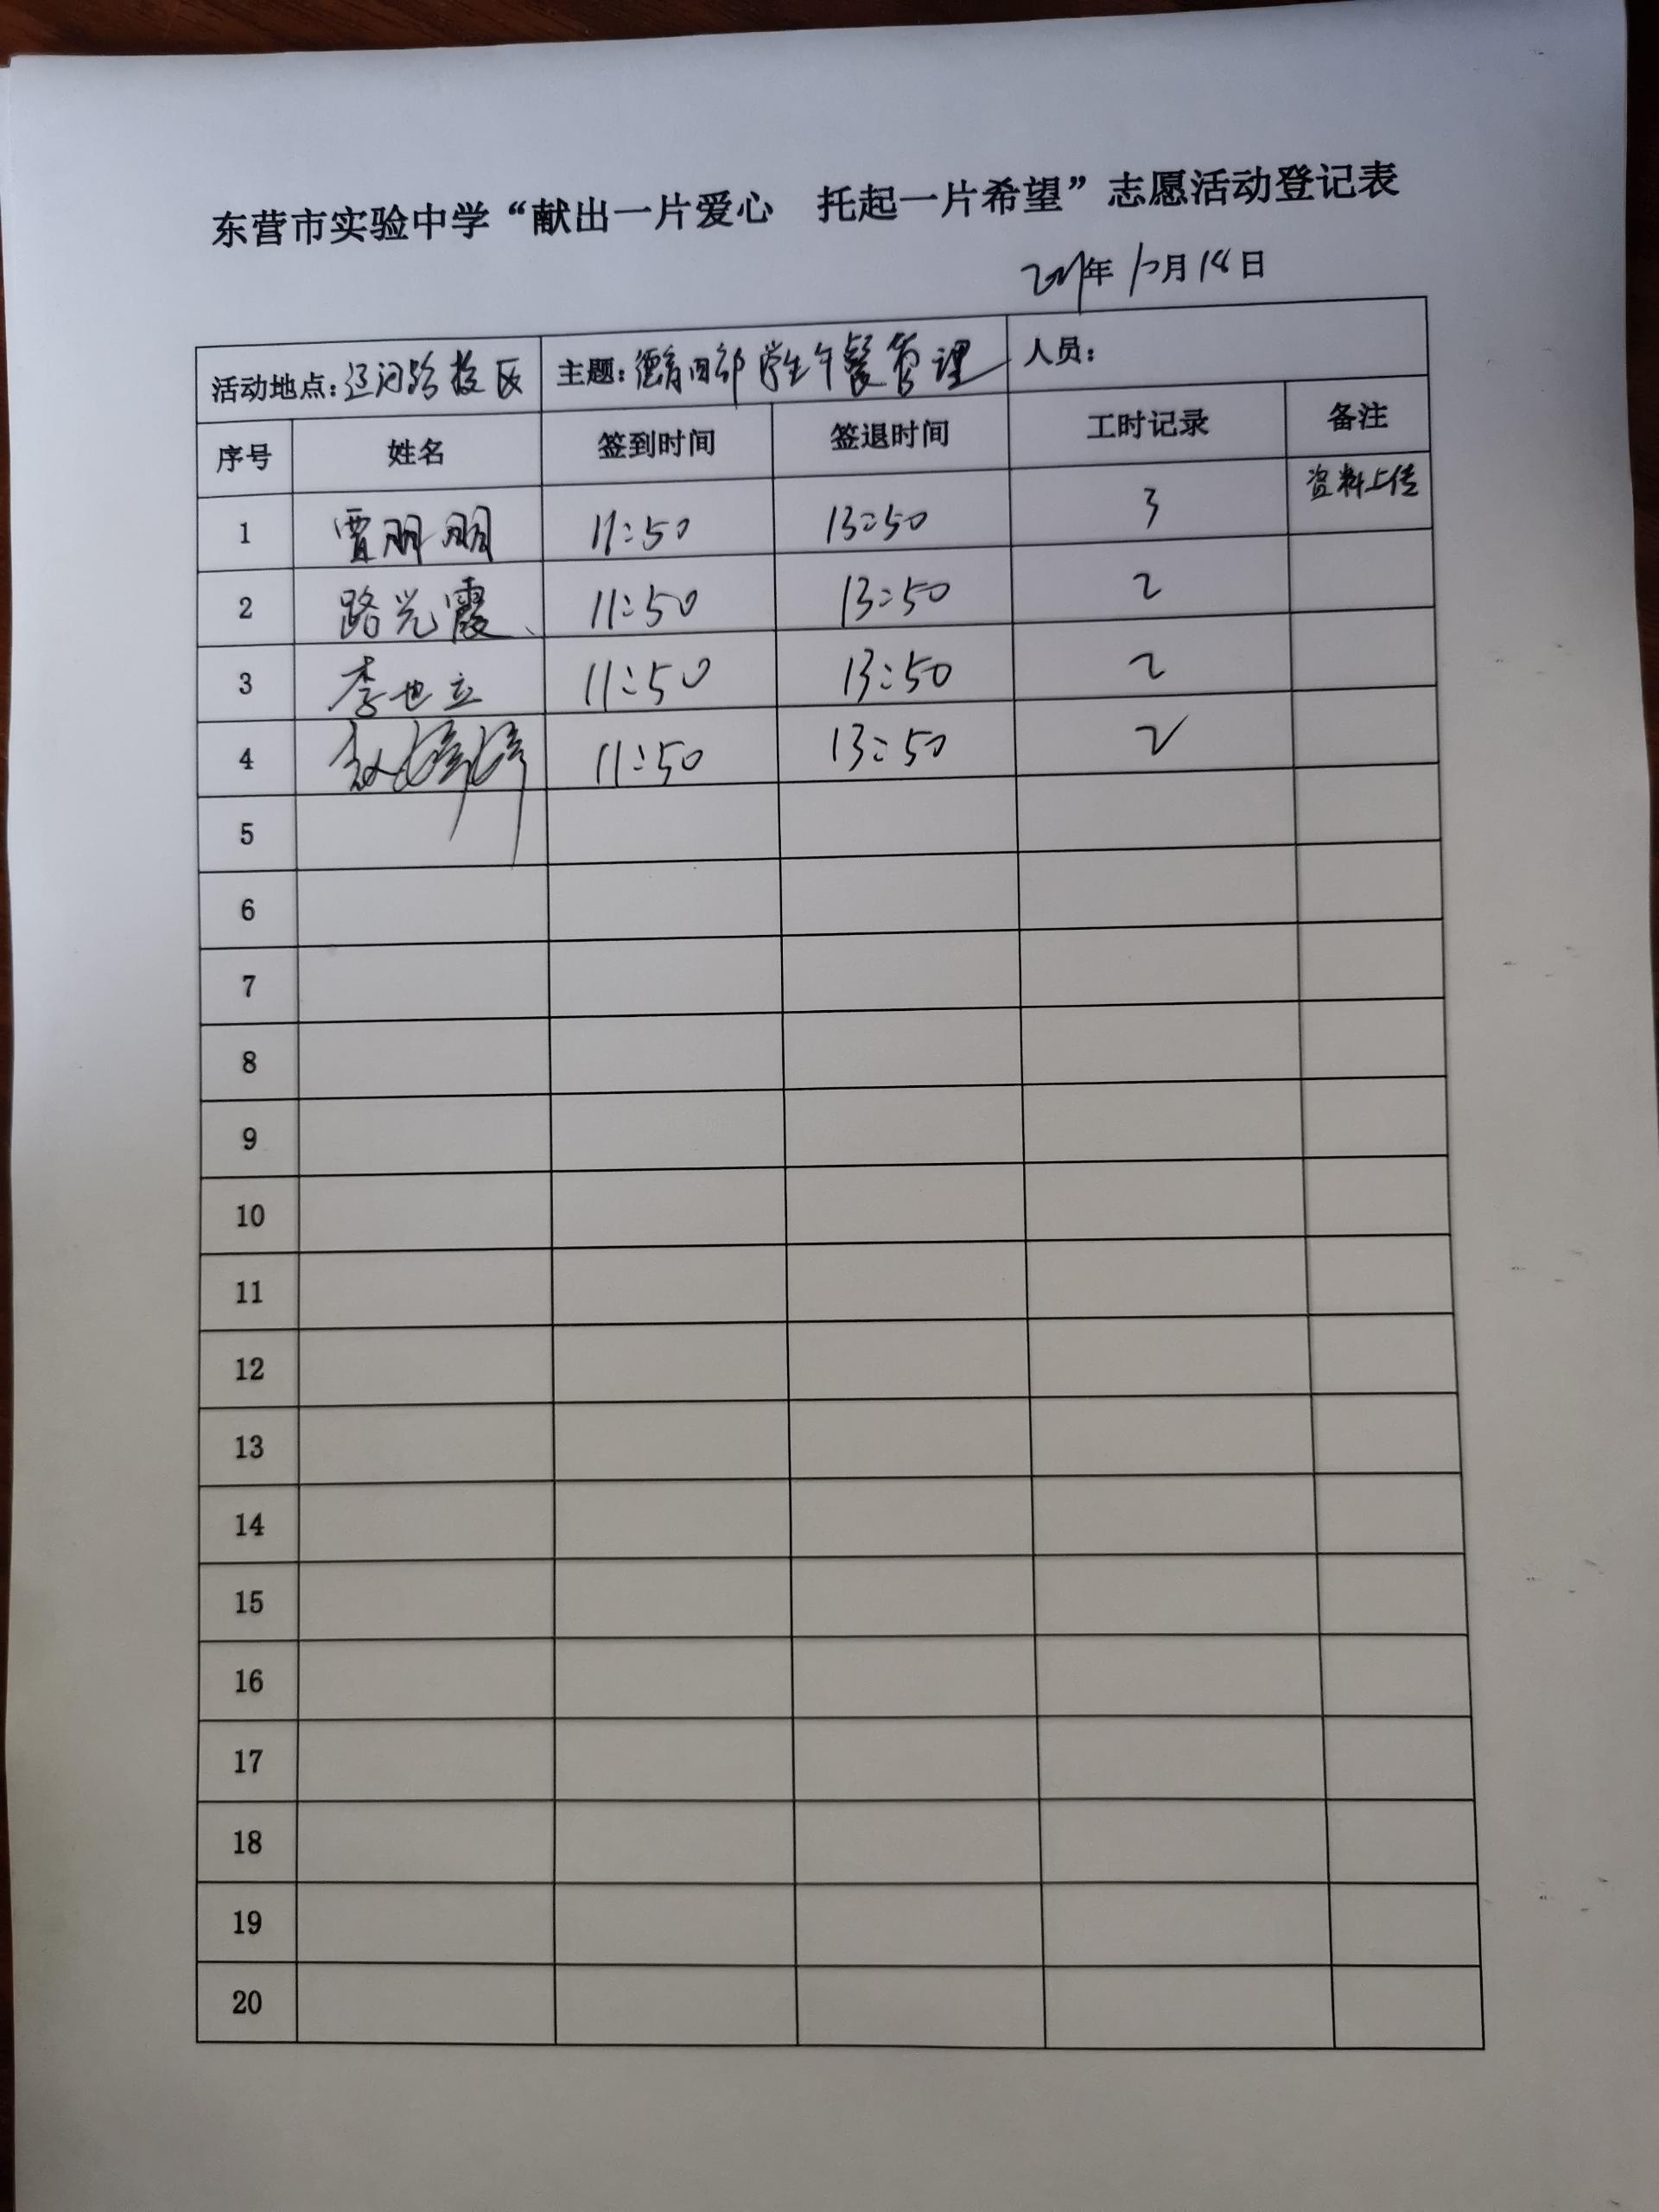 东营市实验中学“献出一片爱心　托起一片希望”志愿活动登记表
年 月 18 日
活动地点：辽河路校区 主题：德育四部学生午餐管理 人员：
序号 姓名 签到时间 签退时间 工时记录 备注
1 贾朋朋 11:50 13:50 3 资料上传
2 路光霞 11:50 13:50 2
3 李世立 11:50 13:50 2
4 赵 11:50 13:50 2
5
6
7
8
9
10
11
12
13
14
15
16
17
18
19
20